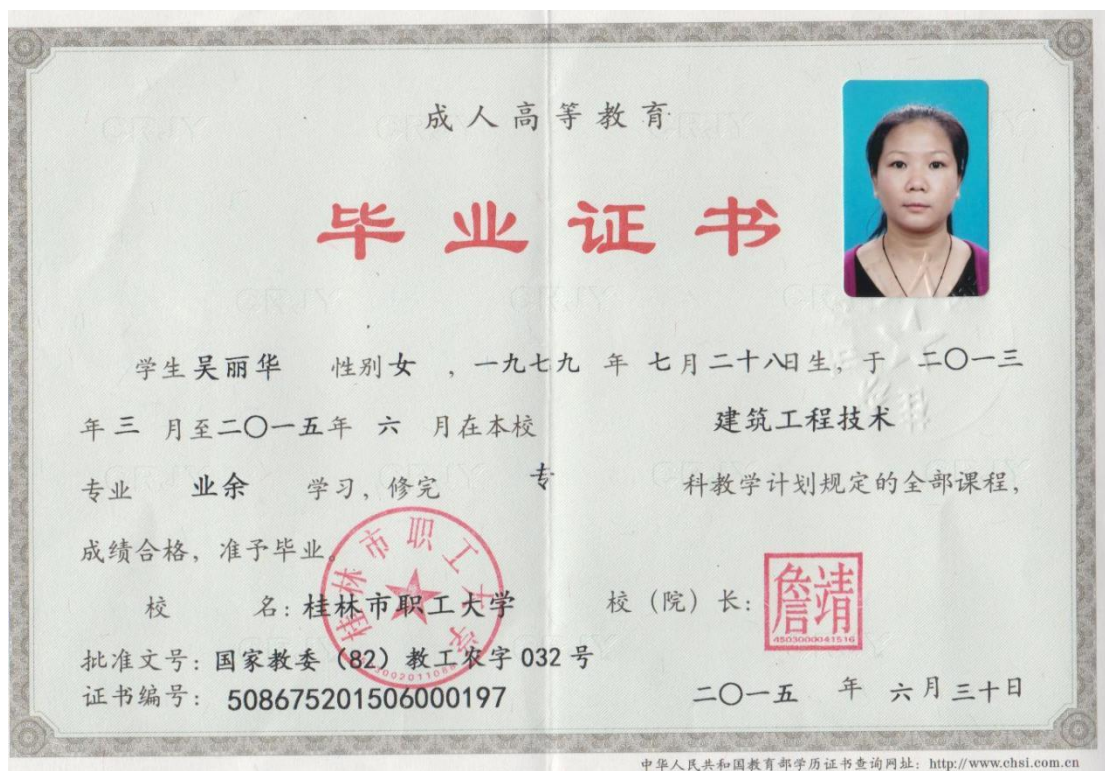 成人高等教育
毕业证书
学生 吴丽华 性别 女 ，一九七九 年 七月二十八日生，于 二〇一三
年 三 月至二〇一五年 六 月在本校 建筑工程技术
专业 业余 学习，修完 专 科教学计划规定的全部课程，
成绩合格，准予毕业。
桂林市职工大学
校 名：桂林市职工大学 校（院）长：
詹靖
4503000041516
批准文号：国家教委（82）教工农字 032 号
证书编号： 508675201506000197
二〇一五 年 六月三十日
中华人民共和国教育部学历证书查询网址：http://www.chsi.com.cn
CRJY